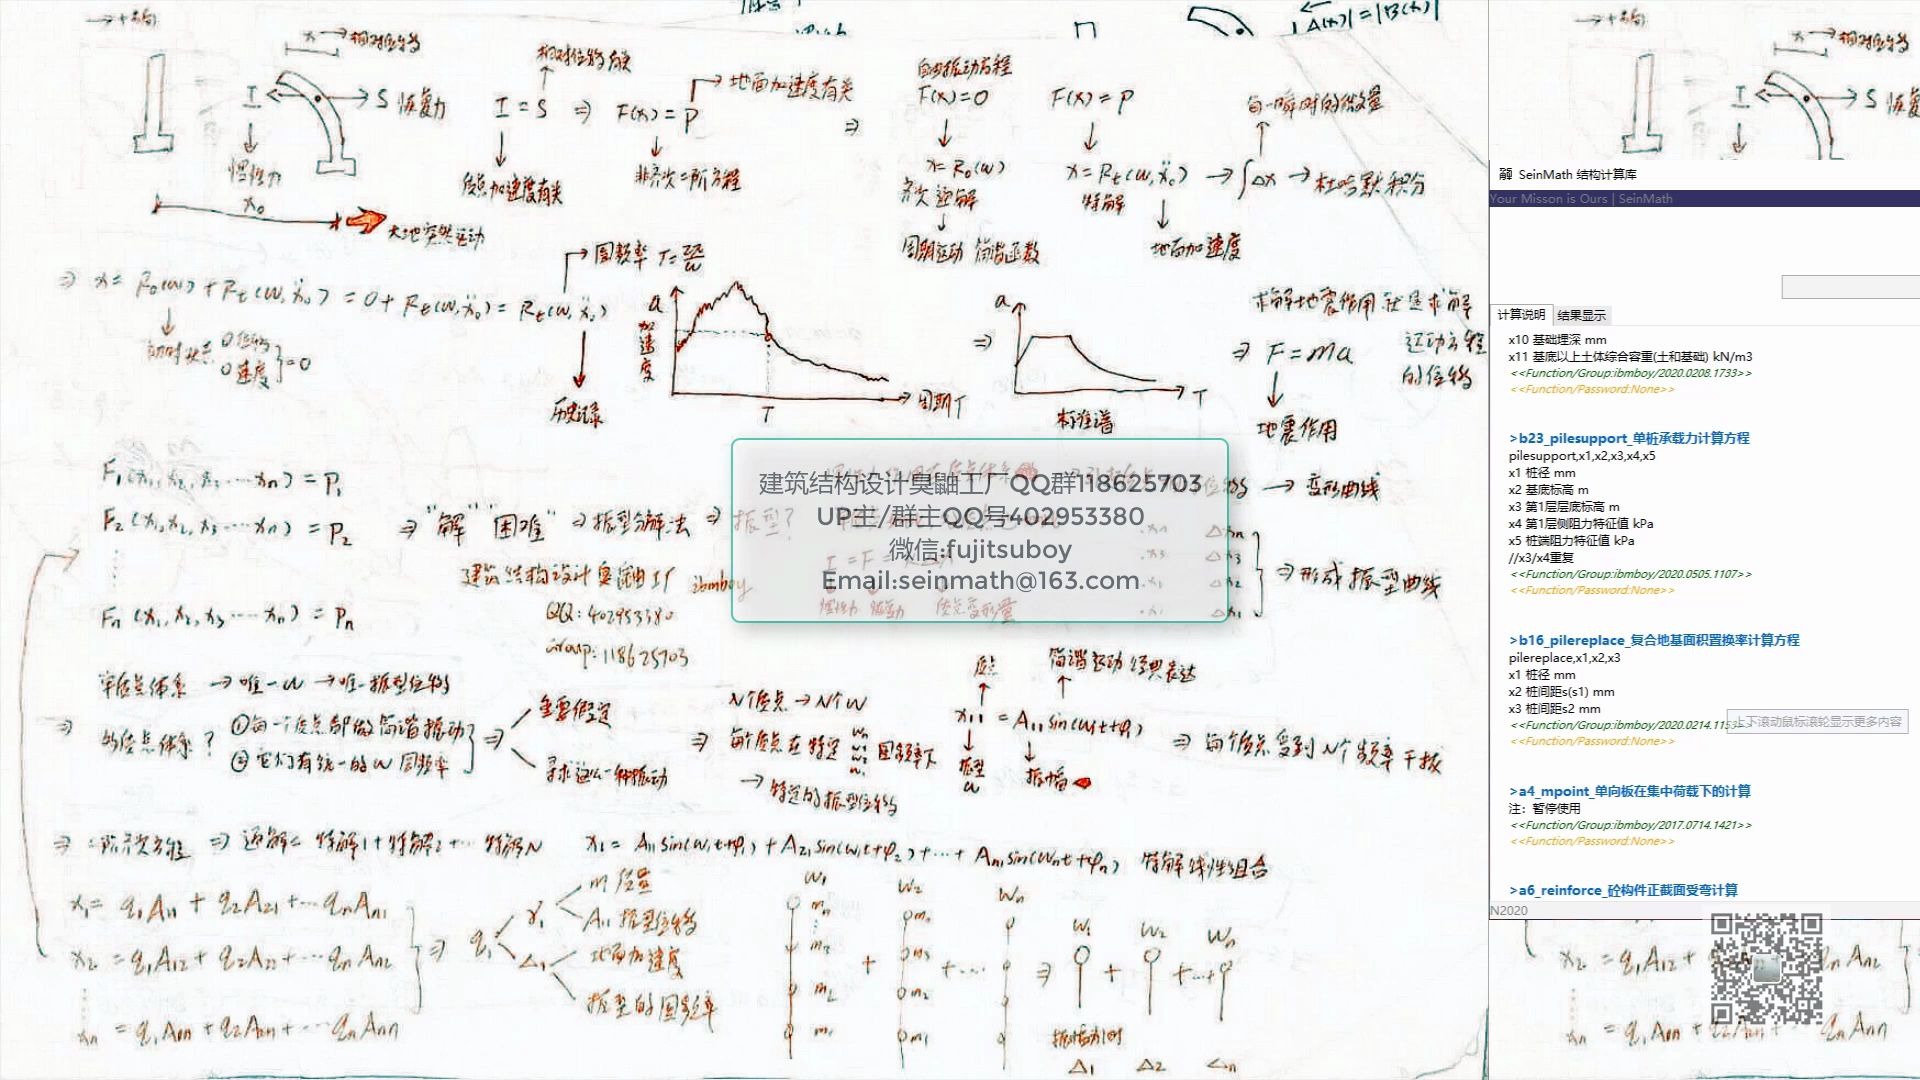 |Δ(x)|=|B(x)|
x → 相对位移
I
S 恢复力
惯性力
x₀
大地突然运动
相对位移有关
I = S ⇒ F(x) = P
地面加速度有关
质点加速度有关
非齐次二阶方程
自由振动方程
F(x)=0
F(x)=P
每一瞬时的微量
x=R₀(w)
x=Rₜ(w,ẍ₀) → ∫Δx → 杜哈默积分
齐次通解
特解
周期运动 简谐函数
地面加速度
⇒ x= R₀(w)+Rₜ(w,ẍ₀) = 0+Rₜ(w,ẍ₀)= Rₜ(w,ẍ₀)
圆频率 T=2π/w
历史记录
a
加速度
T
周期T
a
T
标准谱
求解地震作用就是求解
运动方程
的位移
⇒ F=ma
地震作用
F₁(x₁,x₂,x₃…xₙ)=P₁
F₂(x₁,x₂,x₃…xₙ)=P₂
Fₙ(x₁,x₂,x₃…xₙ)=Pₙ
⇒ "解" "困难" ⇒ 振型分解法 ⇒ 振型?
→ 变形曲线
⇒形成振型曲线
建筑结构设计臭鼬工厂 ibmboy
QQ:402953380
Group:118625703
建筑结构设计臭鼬工厂QQ群118625703
UP主/群主QQ号402953380
微信:fujitsuboy
Email:seinmath@163.com
单质点体系 → 唯一w → 唯一振型位移
多质点体系?
①每一个质点都做简谐振动
②它们有统一的w圆频率
重要假定
寻求这么一种振动
N个质点→N个w
每个质点在特定
圆频率下
→ 特定的振型位移
质点
简谐运动经典表达
x₁₁ = A₁₁sin(w₁t+φ₁)
振型
w
振幅
⇒ 每个质点受到N个频率干扰
⇒ 二阶齐次方程 ⇒ 通解= 特解1+特解2+… 特解N
x₁= A₁₁sin(w₁t+φ₁)+A₂₁sin(w₂t+φ₂)+…+Aₙ₁sin(wₙt+φₙ) 特解线性组合
x₁= q₁A₁₁ + q₂A₂₁ +…qₙAₙ₁
x₂ = q₁A₁₂+ q₂A₂₂ +…qₙAₙ₂
xₙ = q₁A₁ₙ + q₂A₂ₙ+…qₙAₙₙ
⇒ q₁
γ₁
Δ₁
m 质量
A₁₁ 振型位移
地面加速度
振型的圆频率
w₁
w₂
wₙ
mₙ
m₃
m₂
m₁
w₁
w₂
wₙ
振幅为1时
Δ₁
Δ₂
Δₙ
SeinMath 结构计算库
Your Misson is Ours | SeinMath
计算说明 结果显示
x10 基础埋深 mm
x11 基底以上土体综合容重(土和基础) kN/m3
<<Function/Group:ibmboy/2020.0208.1733>>
<<Function/Password:None>>
>b23_pilesupport_单桩承载力计算方程
pilesupport,x1,x2,x3,x4,x5
x1 桩径 mm
x2 基底标高 m
x3 第1层层底标高 m
x4 第1层侧阻力特征值 kPa
x5 桩端阻力特征值 kPa
//x3/x4重复
<<Function/Group:ibmboy/2020.0505.1107>>
<<Function/Password:None>>
>b16_pilereplace_复合地基面积置换率计算方程
pilereplace,x1,x2,x3
x1 桩径 mm
x2 桩间距s(s1) mm
x3 桩间距s2 mm
<<Function/Group:ibmboy/2020.0214.115
上下滚动鼠标滚轮显示更多内容
<<Function/Password:None>>
>a4_mpoint_单向板在集中荷载下的计算
注：暂停使用
<<Function/Group:ibmboy/2017.0714.1421>>
<<Function/Password:None>>
>a6_reinforce_砼构件正截面受弯计算
N2020